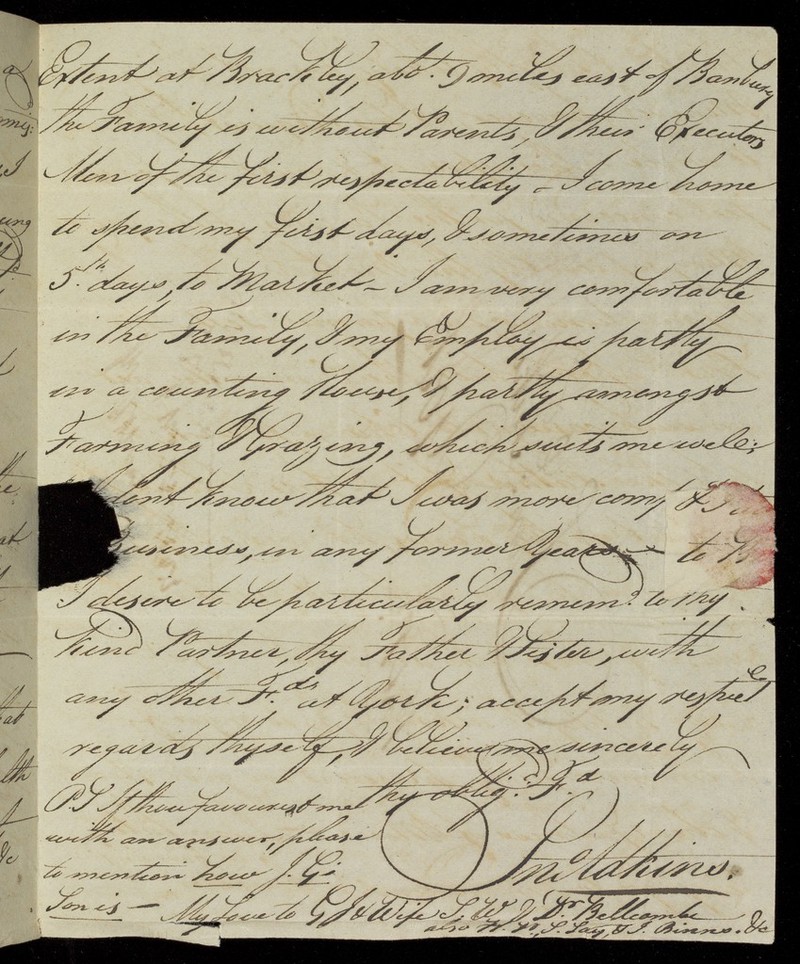 Extent at Brackley, abt. 9 miles east of Banbury
the Family is without Parents, & their Executors
Men of the first respectability – I come home
to spend my first days, & sometimes on
5.th days, to Market – I am very comfortable
in the Family, & my Employ is partly
in a counting House, & partly amongst
Farming & Grazing, which suits me well;
dont know that I was more comf
Business, in any former Years – to
I desire to be particularly remem.d to my
kind Partner, thy Father & Sister, with
any other F.ds at York; accept my respec
regards thyself, & believe me sincerely
thy oblig.d F.d
Jn.o Adkins.
P.S If thou favourest me
with an answer, please
to mention how J. G:
Son is – My Love to G J & Wife Dr. Bellcombe
also S. Tay, & J. Binns. &c